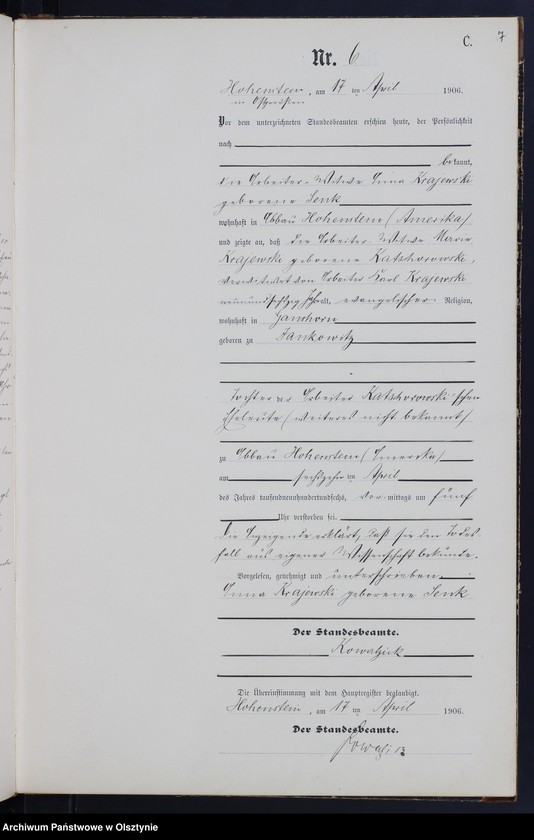 C.
7
Nr. 6
Hohenstein, am 17ten April 1906.
in Ostpreußen
Vor dem unterzeichneten Standesbeamten erschien heute, der Persönlichkeit
nach
bekannt,
die Arbeiter-Witwe Anna Krajewski
geborene Senk
wohnhaft in Abbau Hohenstein (Amerika)
und zeigte an, daß die Arbeiter-Witwe Marie
Krajewski geborene Katschorowski,
verwitwet von Arbeiter Karl Krajewski
neunundsechzig Jahre alt, evangelischer Religion,
wohnhaft in
geboren zu Jankowitz
Tochter der Arbeiter Katschorowski'schen
Eheleute (weiteres nicht bekannt)
zu Abbau Hohenstein (Amerika)
am sechszehnten April
des Jahres tausendneunhundertundsechs, vormittags um fünf
Uhr verstorben sei.
Die Anzeigende erklärt, daß sie den Todes-
fall aus eigener Wissenschaft bekunde.
Vorgelesen, genehmigt und unterschrieben
Anna Krajewski geborene Senk
Der Standesbeamte.
Kowalzick
Die Übereinstimmung mit dem Hauptregister beglaubigt.
Hohenstein, am 17ten April 1906.
Der Standesbeamte.
Archiwum Państwowe w Olsztynie